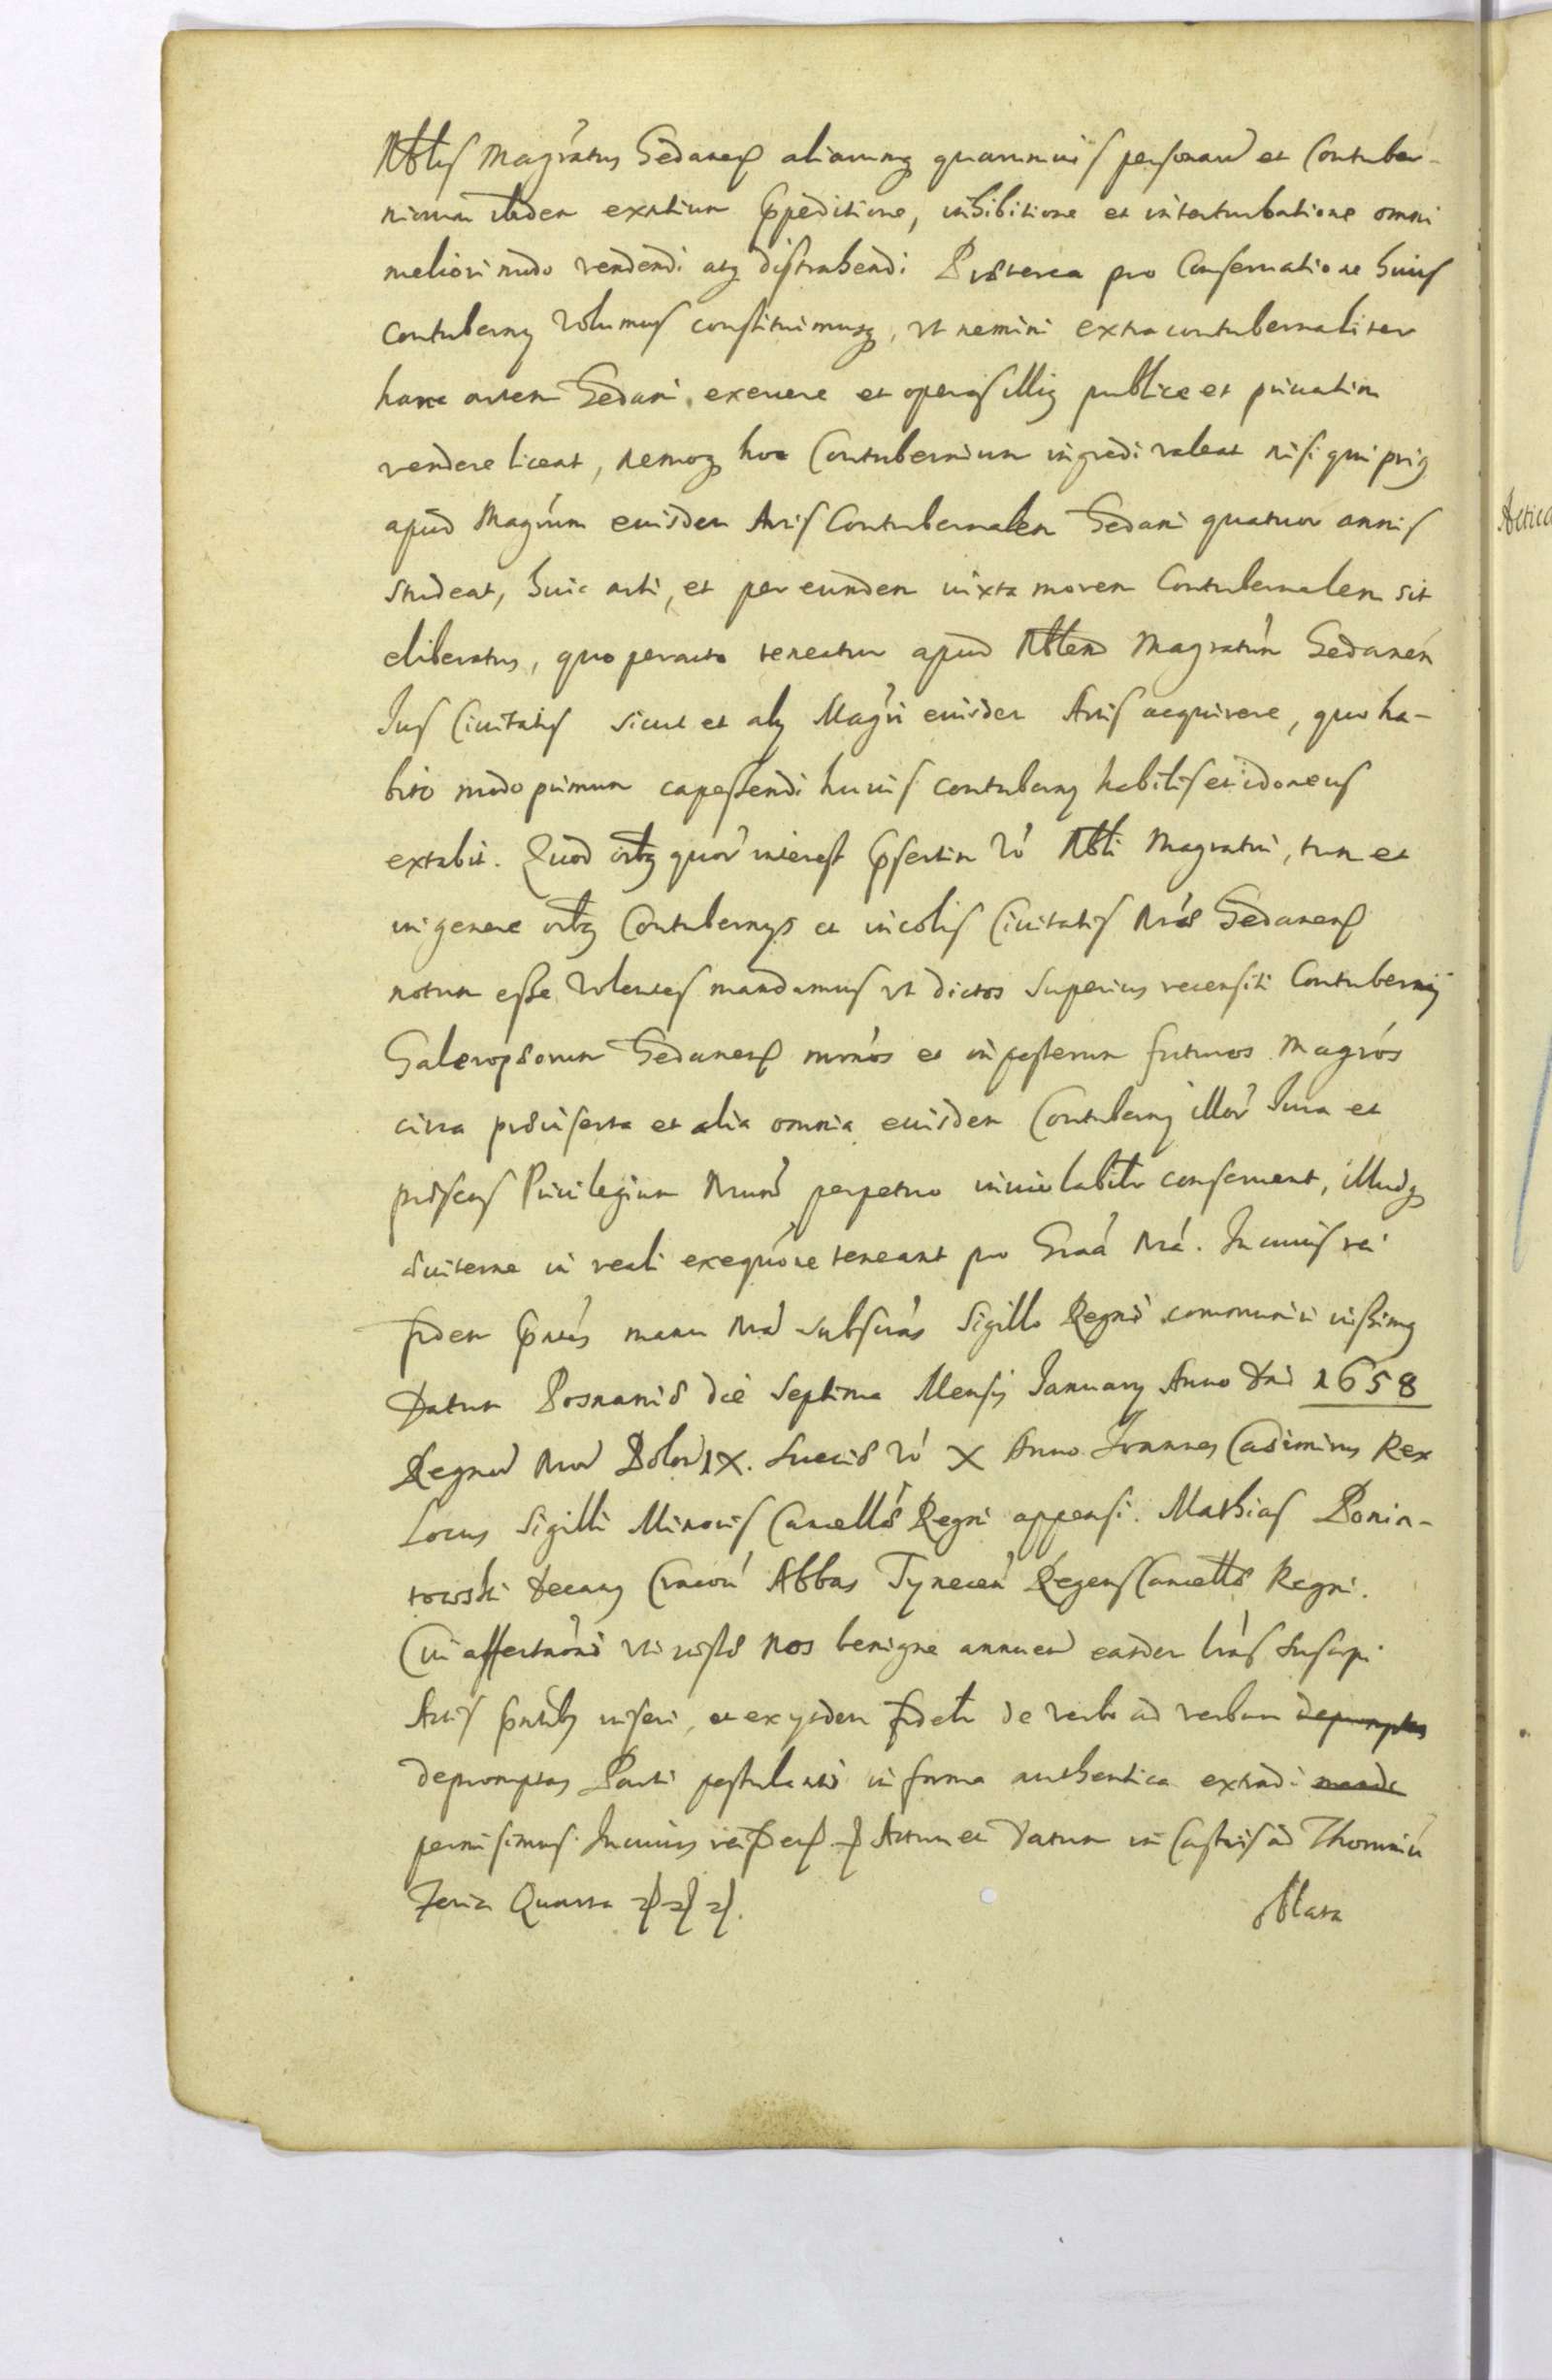 Nbtis Magr̃atus Gedanen̄ aliarumq̨ quarumuis personarũ et Contuber-
niorum ibidem extantium Impeditione, inhibitione et interturbatione omni
meliori modo vendendi atq̨ distrahendi Præterea pro Conseruatione huius
Contubernij volumus constituimusq̨, vt nemini extra contubernaliter
hanc artem Gedani exercere et operas illiq̨ publice et priuatim
vendere liceat, nemoq̨ hoc Contubernium ingredi valeat nisi qui prius
apud Magr̃um eiusdem Artis Contubernalem Gedani quatuor annis
studeat, huic arti, et per eundem iuxta morem Contubernalem sit
eliberatus, quo peracto teneatur apud Nblem Magratũm Gedanen̄
Jus Ciuitatis sicut et alij Magr̃i eiusdem Artis acquirere, quo ha-
bito modo primum capessendi huius contubernij habilis et idoneus
extabit. Quod oībq̨ quor̃ interest p̃sertim v̊ Nbli Magratui, tum et
in genere oībq̨ Contubernijs et incolis Ciuitatis Nr̃æ Gedanen̄
notum esse volentes mandamus vt dictos superius recensiti Contubernij
Galeropæorum Gedanen̄ mr̃nos et in posterum futuros Magr̃os
circa præinserta et alia omnia eiusdem Contubernij illor̃ Jura et
præsens Priuilegium Nrum̃ perpetuo inuiolabilr̃ conseruent, illudq̨
æuiterne in reali exeqūone teneant pro Gr̃aã Nr̃a. In cuius rei
fidem p̃ntes manu Nrã subscr̃as Sigillo Regni communiri iussimus
Datum Posnaniæ die Septima Mensis January Anno Dni 1658
Regnor̃ Nror̃ Polon̄ IX. Sueciæ v̊ X Anno Joannes Casimirus Rex
Locus Sigilli Minoris Cancell̃æ Regni appensi. Mathias Ponia-
towski Decanus Cracou̇ Abbas Tynecen̄ Regens Cancellæ Regni.
Cui affectar̃oni vti iustæ nos benigne annuen̄ easdem lr̃as suscipi
Actis p̃ntibq̨ inseri, et ex ijsdem fidelr̃ de verbo ad verbum depromptas
depromptas Parti postulanti in forma authentica extradi
permisimus. In cuius rei fidem Actum et Datum in Castris ad Thoruniũ
Feria Quarta